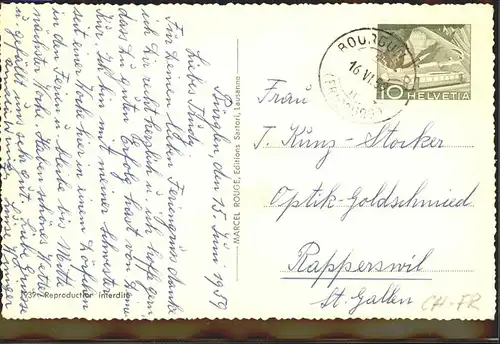 Burgen, den 15. Juni 1959
Liebes Trudy
Für Deinen lieben Feriengruss danke
ich Dir recht herzlich u. ich hoffe gern
dass Du guten Erfolg hast von Deiner
Kur. Ich bin mit meiner Schwester
seit einer Woche hier in einem Dörfchen
in den Ferien u. bleibe bis Mitte
nächster Woche. Haben schönes Wetter
u. gefällt uns sehr gut. Liebe Grüsse
MARCEL ROUGE, Editions Sartori, Lausanne
Reproduction interdite
BOURGU
16 VI 59
10 HELVETIA
Frau
T. Kunz-Stocker
Optik-Goldschmied
Rapperswil
St. Gallen
CH-FR